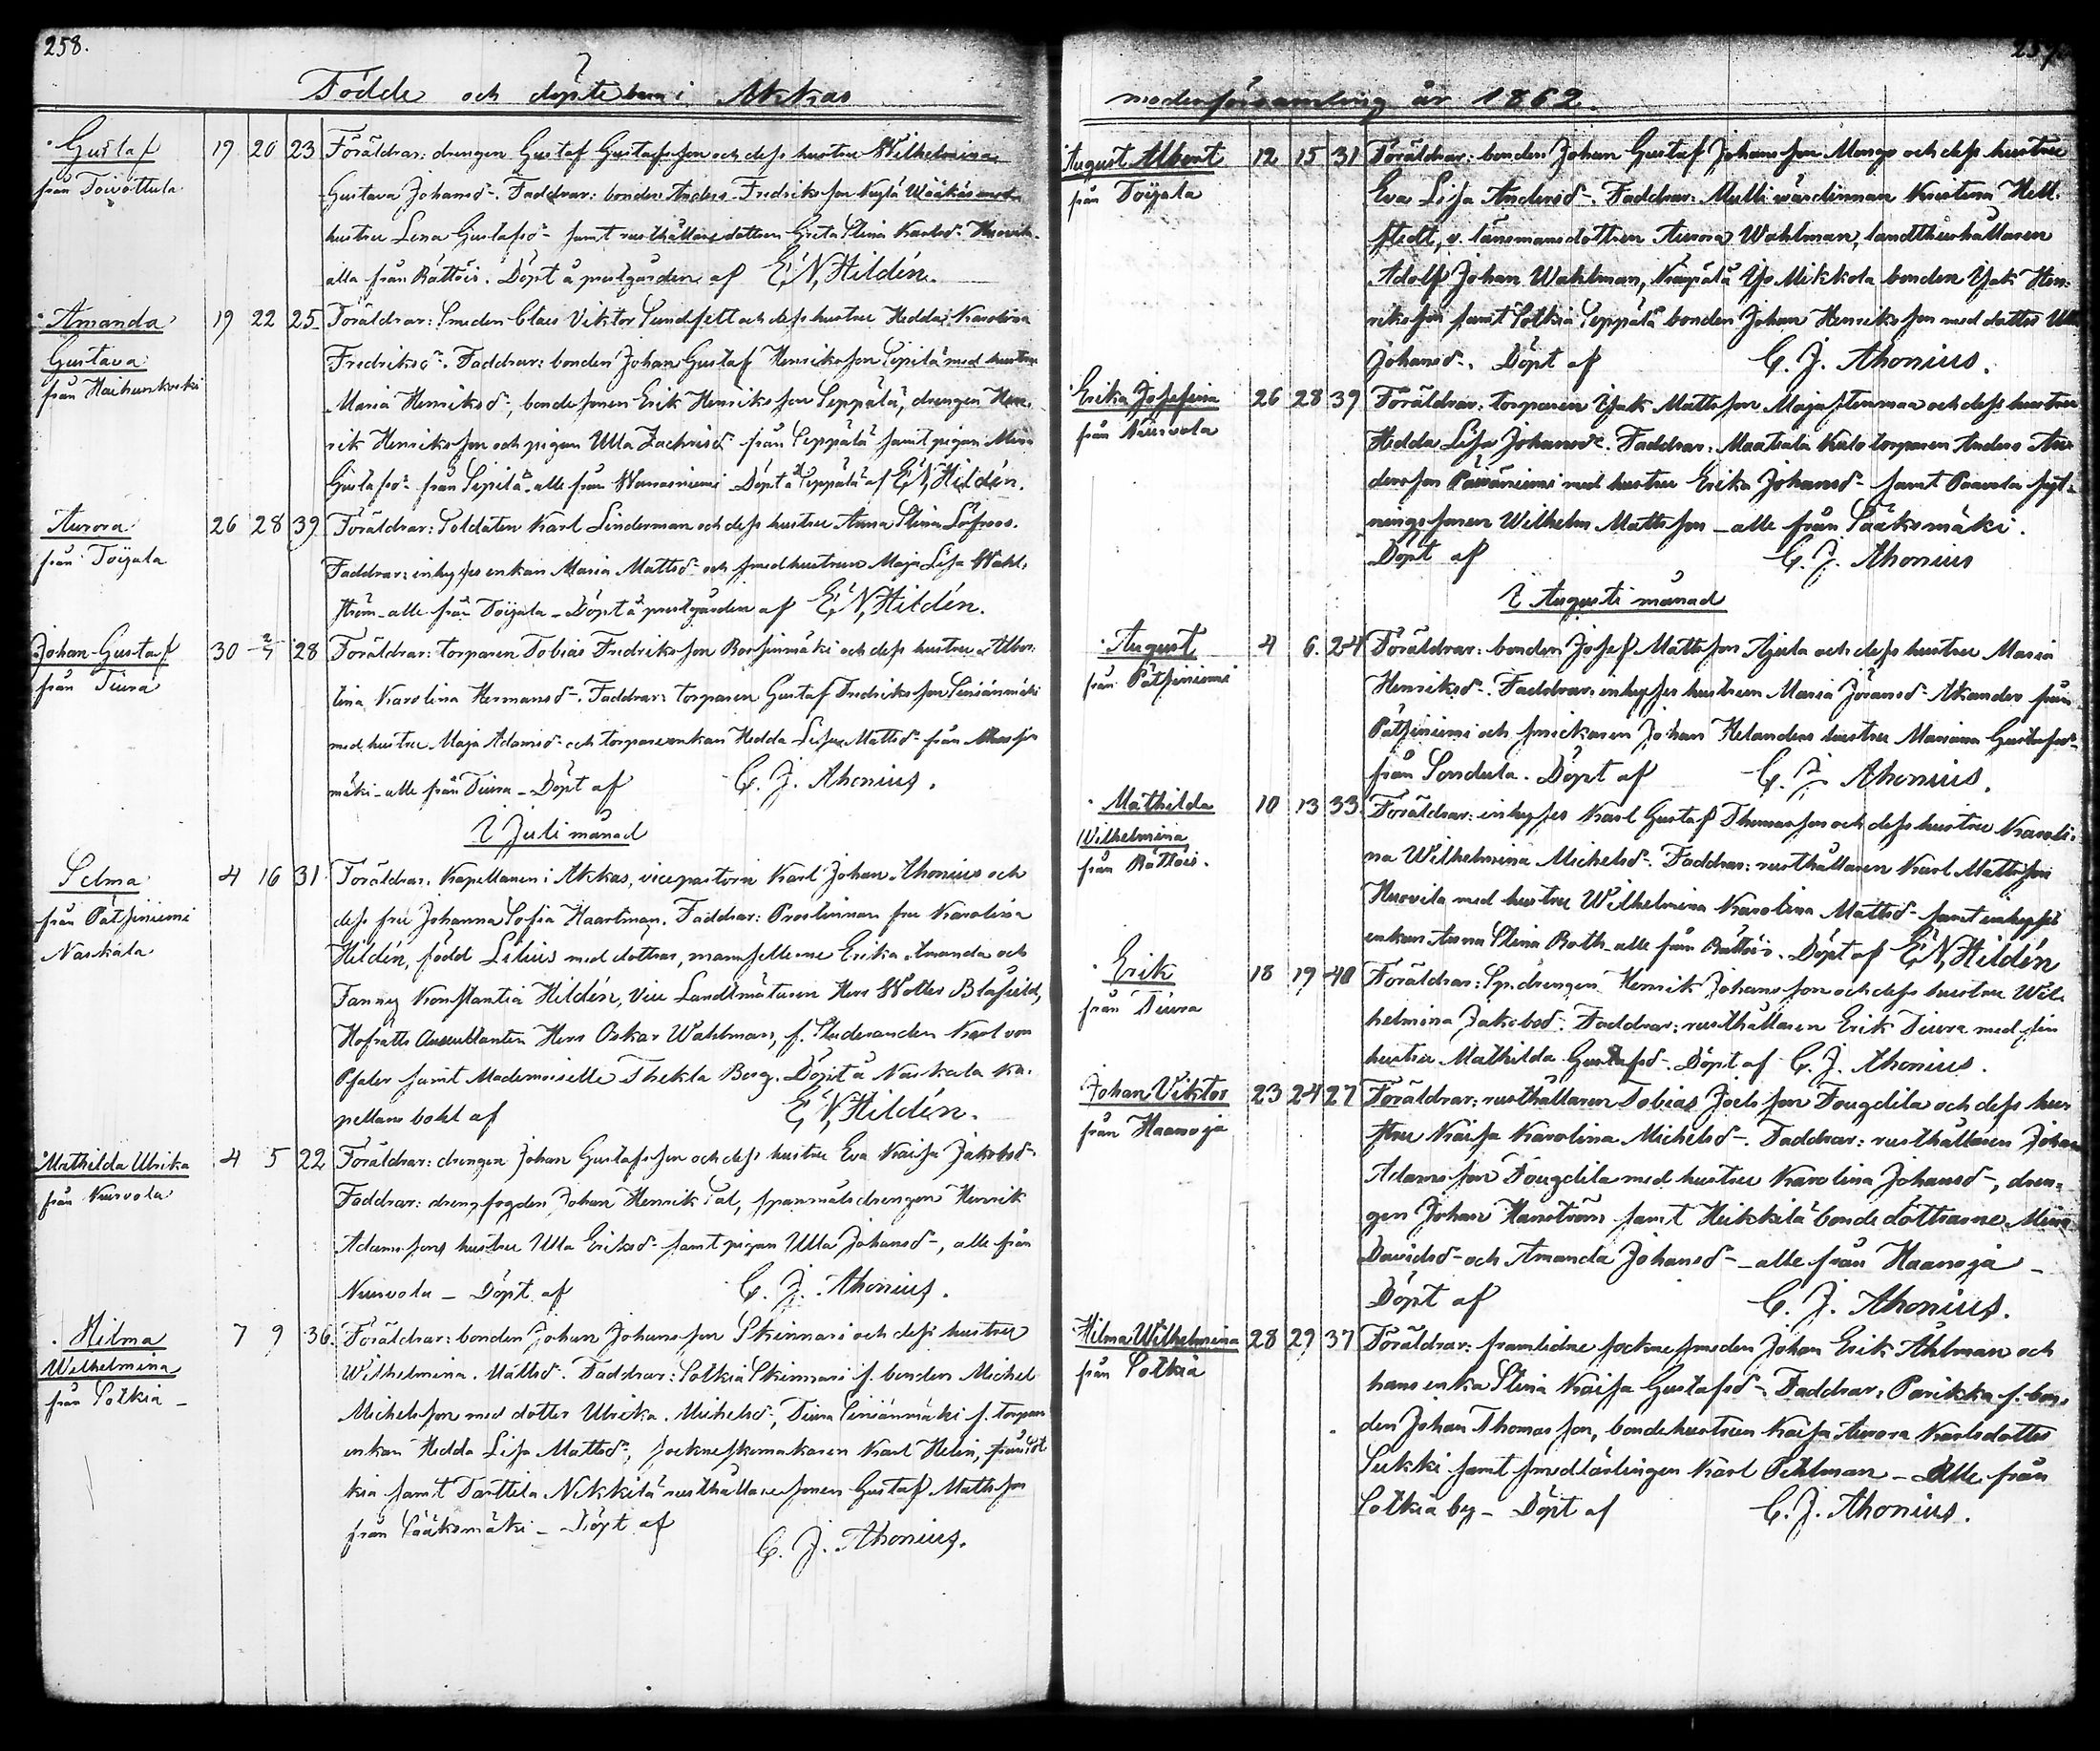 258.
Födde och döpte barn i Akkas
Gustaf 19 20 23 Föräldrar: drengen Gustaf Gustafsson och dess hustru Wilhelmina
från Toivottula Gustava Johansd. Faddrar: bonden Anders Fredriksson
hustru Lena Gustafsd. samt rusthållare dottren Greta Stina Karlsd.
alla från Rättöis. Döpt å prestgården af E. N. Hildén.
Amanda 19 22 25 Föräldrar: Smeden Claes Viktor Sundfelt och dess hustru Hedda Karolina
Gustava Fredriksd. Faddrar: bonden Johan Gustaf Henriksson Sipilä med hustru
från Haihunkoski Maria Henriksd., bondesonen Erik Henriksson Seppälä, drengen Hen-
rik Henriksson och pigan Ulla Zachrisd. från Seppälä samt pigan Mina
Gustafsd. från Sipilä alle från Warrasniemi Döpt å Seppälä af E. N. Hildén.
Aurora 26 28 39 Föräldrar: Soldaten Karl Linderman och dess hustru Anna Stina Löfroos.
från Toijala Faddrar: inhyses enkan Maria Mattsd. och smedhustrun Maja Lisa Wahl-
ström - alle från Toijala - Döpt å prestgården af E. N. Hildén.
Johan Gustaf 30 2/7 28 Föräldrar: torparen Tobias Fredriksson och dess hustru Alber-
från Tiura tina Karolina Hermansd. Faddrar: torparen Gustaf Fredriksson
med hustru Maja Adamsd. och torpareenkan Hedda Lisa Mattsd. från
mäki - alle från Tiura - Döpt af C. J. Ahonius.
I Juli månad
Selma 4 16 31 Föräldrar: Kapellanen i Akkas, vicepastorn Karl Johan Ahonius och
från Pätsiniemi dess fru Johanna Sofia Haartman. Faddrar: Prostinnan fru Karolina
Naskala Hildén, född Lilius med döttrar, mamsellerne Erika Amanda och
Fanny Konstantia Hildén, Vice Landtmätaren Herr Wolter Blåfield,
Hofrätts Auscultanten Herr Oskar Wahlman, f. Studeranden Karl von
Pfaler samt Mademoiselle Thekla Berg. Döpt å Naskala ka-
pellans bohl af E. N. Hildén.
Mathilda Ulrika 4 5 22 Föräldrar: drengen Johan Gustafsson och dess hustru Eva Kaisa Jakobsd.
från Nurvola Faddrar: drengfogden Johan Henrik Sal, spannmålsdrengen Henrik
Adamssons hustru Ulla Eriksd. samt pigan Ulla Johansd., alle från
Nurvola - Döpt af C. J. Ahonius.
Hilma 7 9 36. Föräldrar: bonden Johan Johansson Skinnari och dess hustru
Wilhelmina Wilhelmina Mattsd. Faddrar: Sotkia Skinnari f. bonden Michel
från Sotkia - Michelsson med dotter Ulrika Michelsd., Tiura f. torpar
enkan Hedda Lisa Mattsd., sockneskomakaren Karl Helin, från Sot-
kia samt Tarttila Nikkilä rusthållaresonen Gustaf Mattsson
från Sääksmäki - Döpt af C. J. Ahonius.
moderförsamling år 1862.
August Albert 12 15 31 Föräldrar: bonden Johan Gustaf Johansson Mongo och dess hustru
från Toijala Eva Lisa Andersd. Faddrar: Multi värdinnan Kristina Hell-
stedt, v. länsmansdottren Aurora Wahlman, landthushållaren
Adolf Johan Wahlman, Mikkola bonden Isak Hen-
riksson samt Sotkia Seppälä bonden Johan Henriksson med dotter Ulla
Johansd. Döpt af C. J. Ahonius.
Erika Josefina 26 28 39 Föräldrar: torparen Isak Mattsson och dess hustru
från Nurvola Hedda Lisa Johansd. Faddrar: torparen Anders An-
dersson Päiväniemi med hustru Erika Johansd. samt
Wilhelm Mattsson - alle från Sääksmäki.
Döpt af C. J. Ahonius
I Augusti månad
August 4 6. 24 Föräldrar: bonden Josef Mattsson Ajula och dess hustru Maria
från Pätsiniemi Henriksd. Faddrar: inhyses hustrun Maria Göransd. Akander från
Pätsiniemi och snickaren Johan Helanders hustru Mariana Gustafsd.
från Sondula. Döpt af C. J. Ahonius.
Mathilda 10 13 33. Föräldrar: inhyses Karl Gustaf Thomasson och dess hustru Karoli-
Wilhelmina na Wilhelmina Michelsd. Faddrar: rusthållaren Karl Mattsson
från Rättöis. Hurvila med hustru Wilhelmina Karolina Mattsd. samt inhyses
enkan Anna Stina Roth - alle från Rättöis. Döpt af E. N. Hildén
Erik 18 19 40 Föräldrar: Sp.drengen Henrik Johansson och dess hustru Wil-
från Tiura helmina Jakobsd. Faddrar: rusthållaren Erik Tiura med sin
hustru Mathilda Gustafsd. Döpt af C. J. Ahonius.
Johan Viktor 23 24 27 Föräldrar: rusthållaren Tobias Joelsson Fougdila och dess hu-
från Haanoja stru Kaisa Karolina Michelsd. Faddrar: rusthållaren Johan
Adamsson Fougdila med hustru Karolina Johansd., dren-
gen Johan Hanström samt Heikkilä bondedöttrarne Mina
Davidsd. och Amanda Johansd. - alle från Haanoja -
Döpt af C. J. Ahonius.
Hilma Wilhelmina 28 29 37 Föräldrar: framlidne sockne smeden Johan Erik Ahlman och
från Sotkia hans enka Stina Kaisa Gustafsd. Faddrar: Parikka f. bon-
den Johan Thomasson, bondehustrun Kaisa Aurora Karlsdotter
Sukki samt smedlärlingen Karl Pihlman - Alle från
Sotkia by - Döpt af C. J. Ahonius.